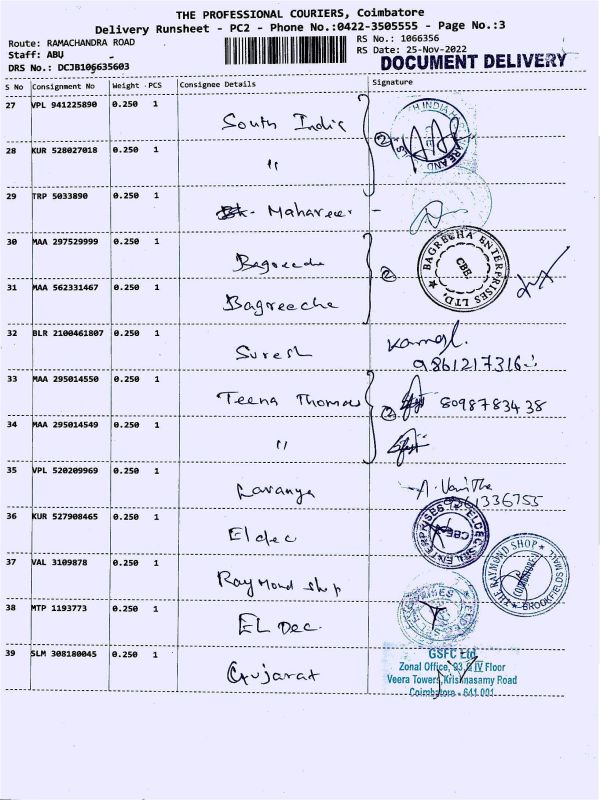 THE PROFESSIONAL COURIERS, Coimbatore
Delivery Runsheet - PC2 - Phone No.:0422-3505555 - Page No.:3
Route: RAMACHANDRA ROAD
RS No.: 1066356
Staff: ABU
RS Date: 25-Nov-2022
DRS No.: DCJB106635603
DOCUMENT DELIVERY
S No Consignment No Weight PCS Consignee Details Signature
27 VPL 941225890 0.250 1 South India
28 KUR 528027018 0.250 1 "
2
29 TRP 5033890 0.250 1 Mahaveer -
30 MAA 297529999 0.250 1 Bagreecha
2
BAGRECHA ENTERPRISES LTD. CBE.
31 MAA 562331467 0.250 1 Bagreeche
32 BLR 2100461807 0.250 1 Suresh Kamal.
9861217316
33 MAA 295014550 0.250 1 Teena Thomas 2 8098783438
34 MAA 295014549 0.250 1 "
35 VPL 520209969 0.250 1 Lavanya A. Vanitha
61336755
36 KUR 527908465 0.250 1 Eldec
37 VAL 3109878 0.250 1 Raymond shop
THE RAYMOND SHOP BROOKFIELDS MALL
38 MTP 1193773 0.250 1 EL Dec.
39 SLM 308180045 0.250 1 Gujarat
GSFC Ltd.
Zonal Office, 93, IV Floor
Veera Towers, Krishnasamy Road
Coimbatore - 641 001